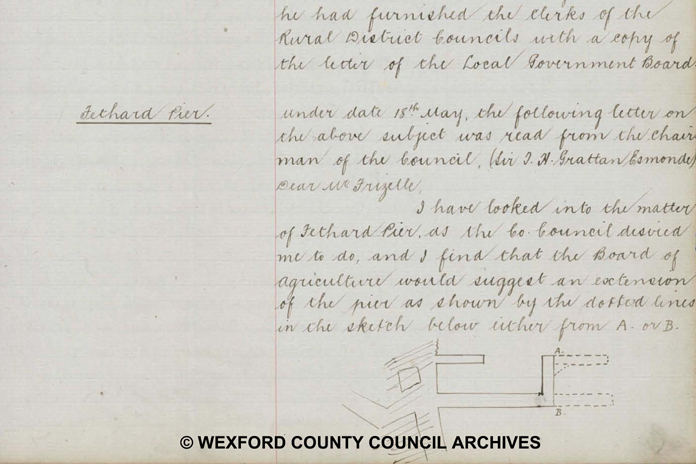 he had furnished the Clerks of the
Rural District Councils with a copy of
the letter of the Local Government Board.
Fethard Pier.
Under date 18th May, the following letter on
the above subject was read from the Chair
man of the Council, (Sir T. H. Grattan Esmonde)
Dear Mr Frizelle,
I have looked into the matter
of Fethard Pier, as the Co. Council desired
me to do, and I find that the Board of
Agriculture would suggest an extension
of the pier as shown by the dotted lines
in the sketch below either from A. or B.
A.
B.
© WEXFORD COUNTY COUNCIL ARCHIVES